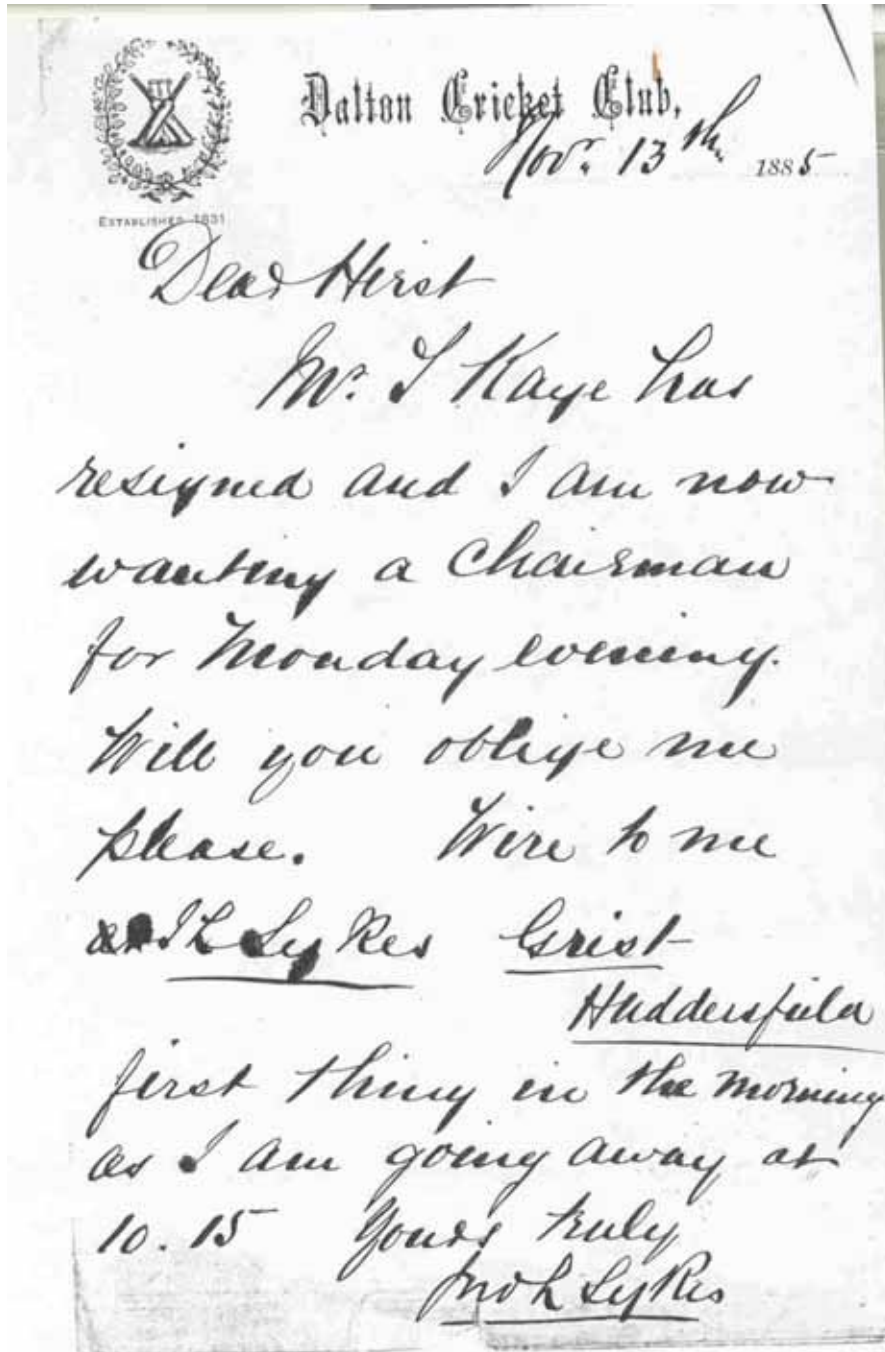 Dalton Cricket Club,
Novr. 13th 1885
ESTABLISHED 1831
Dear Hirst
Mr. I Kaye has
resigned and I am now
wanting a Chairman
for Monday evening.
Will you oblige me
please. Wire to me
I L Sykes Grist
Huddersfield
first thing in the morning
as I am going away at
10.15 Yours truly
Jno L Sykes